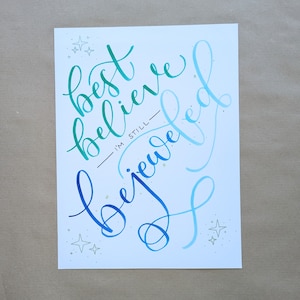 best
believe
I'M STILL
bejeweled